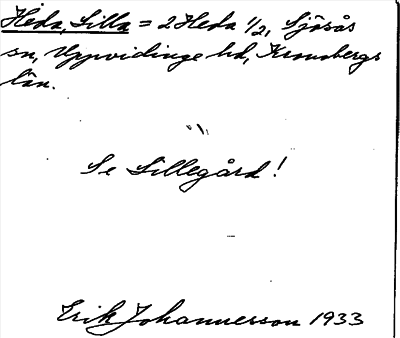 Heda, Lilla = 2 Heda 1/2, Sjösås
sn, Uppvidinge hd, Kronobergs
län.
Se Lillegård!
Erik Johannesson 1933